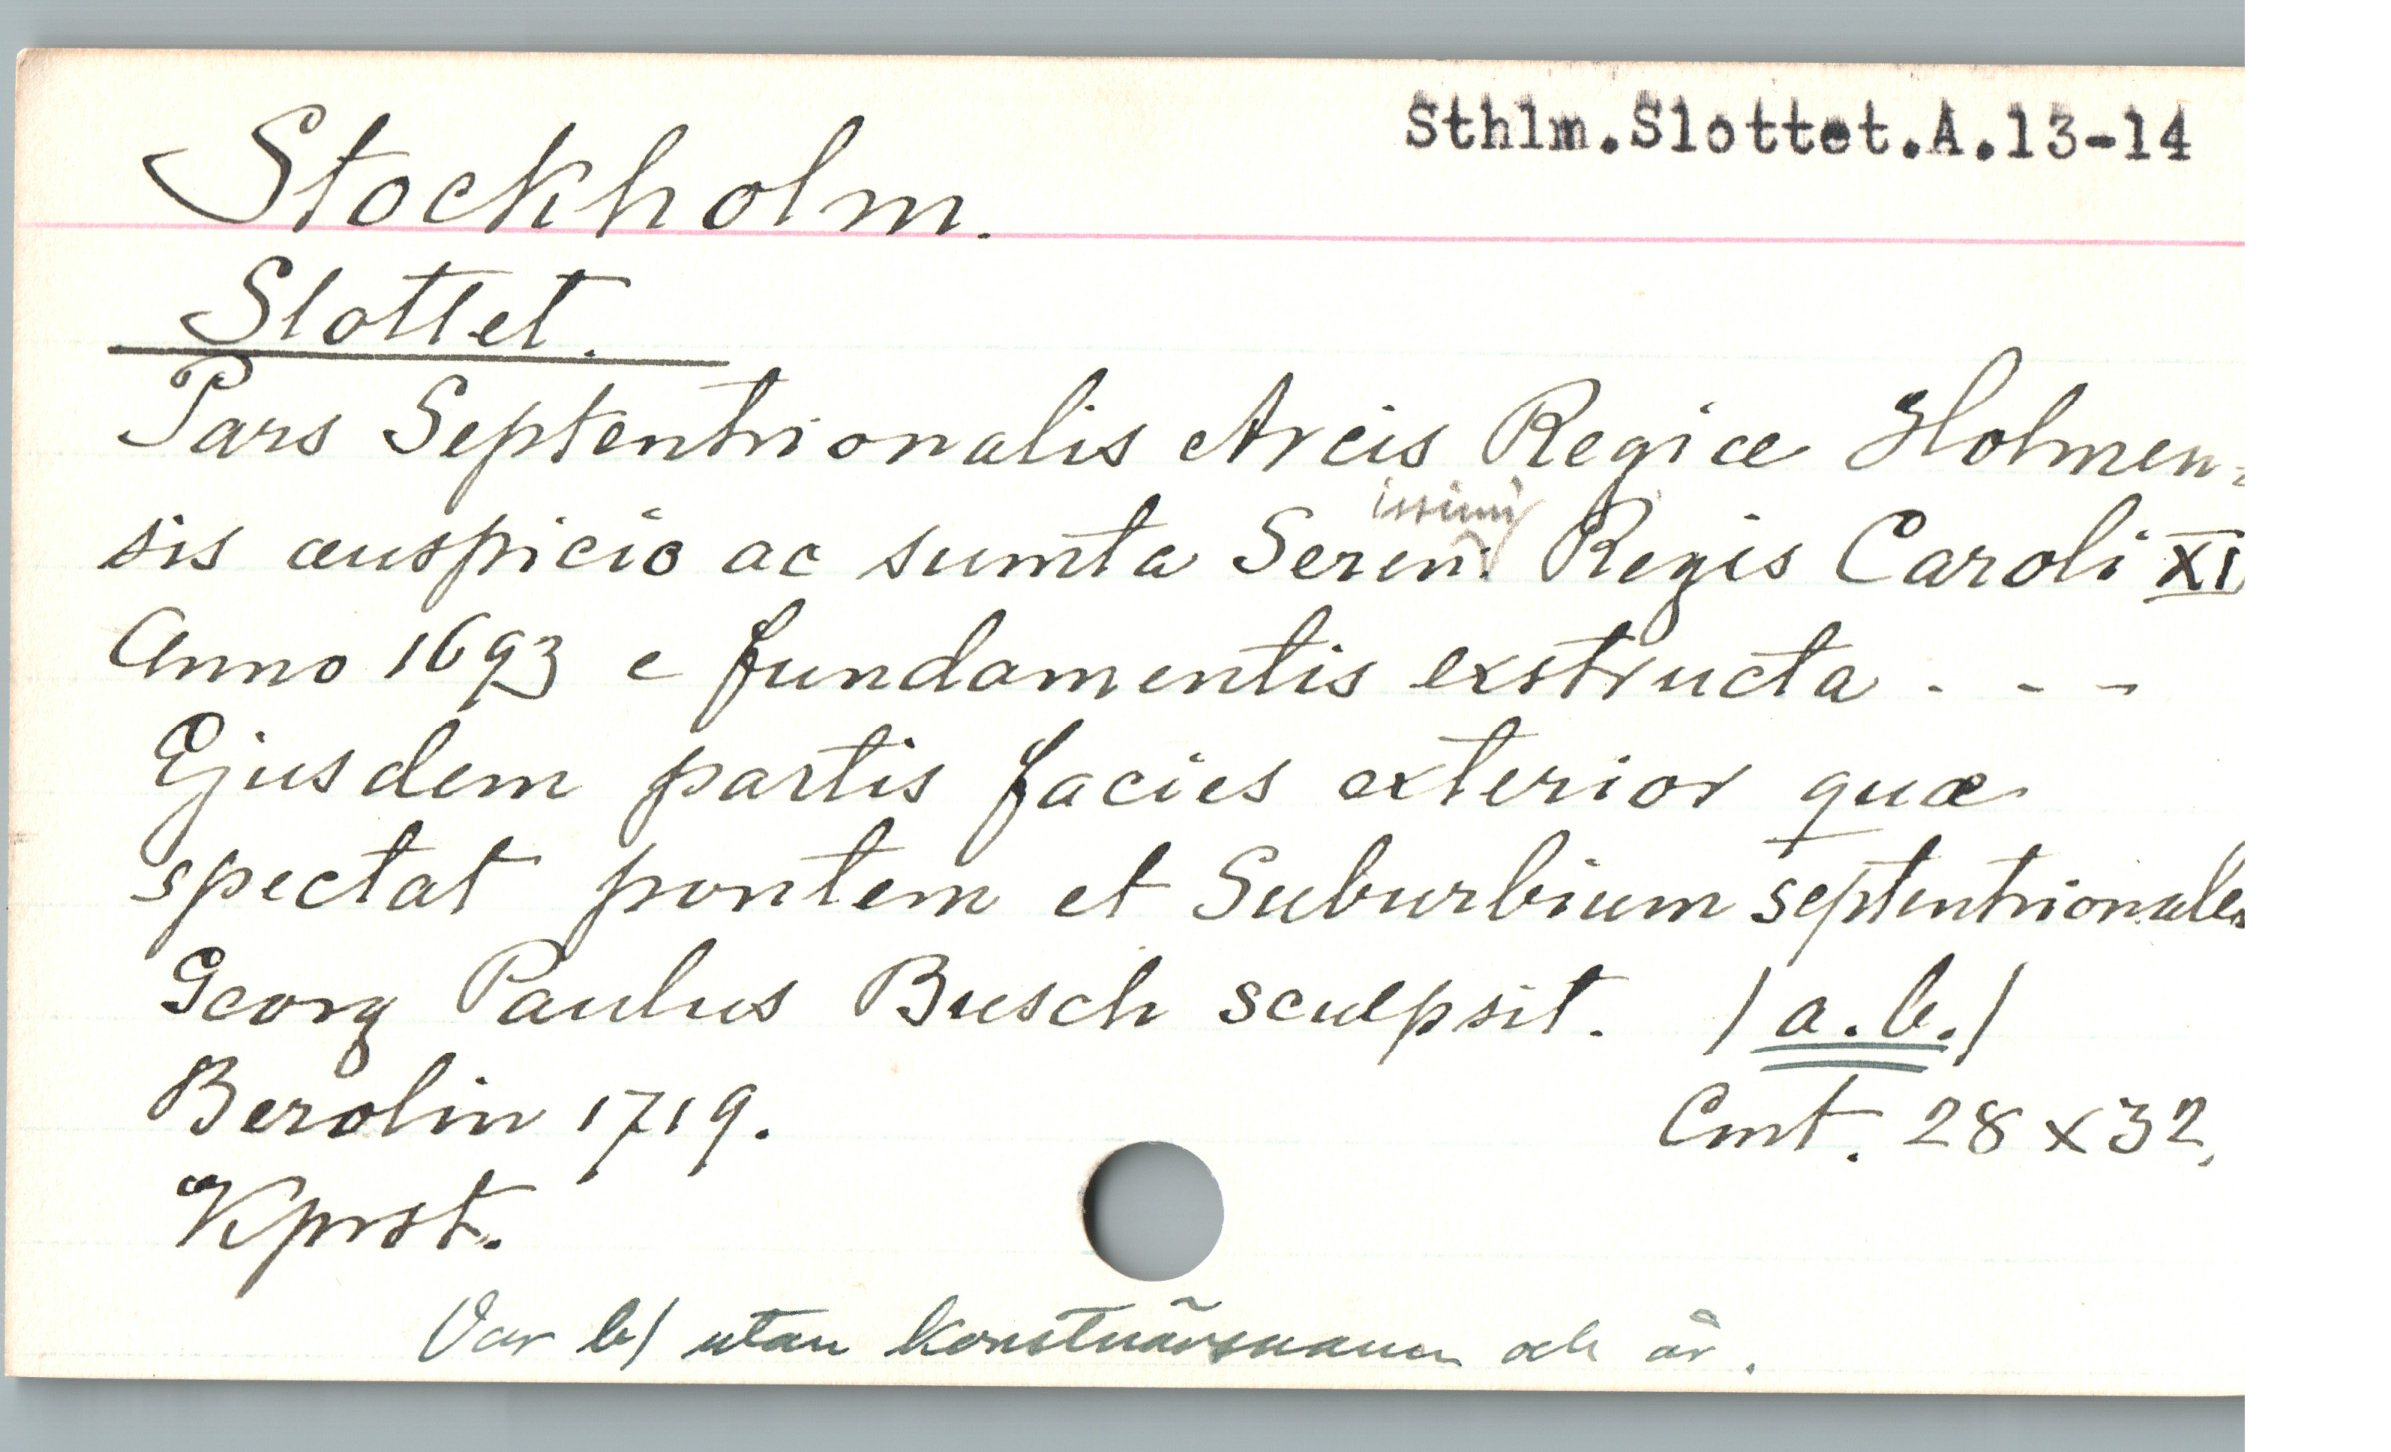 Sthlm.Slottet.A.13-14
Stockholm.
Slottet.
Pars Septentrionalis Arcis Regiæ Holmen-
issimi
sis auspicio ac sumta Seren: Regis Caroli XI
Anno 1693 e fundamentis exstructa - - -
Ejusdem partis facies exterior quæ
spectat pontem et Suburbium septentrionales
Georg Paulus Busch sculpsit. / a.b./
Berolin 1719. Cmt. 28 x 32.
Kprst.
Var b/ utan konstnärsnamn och år.